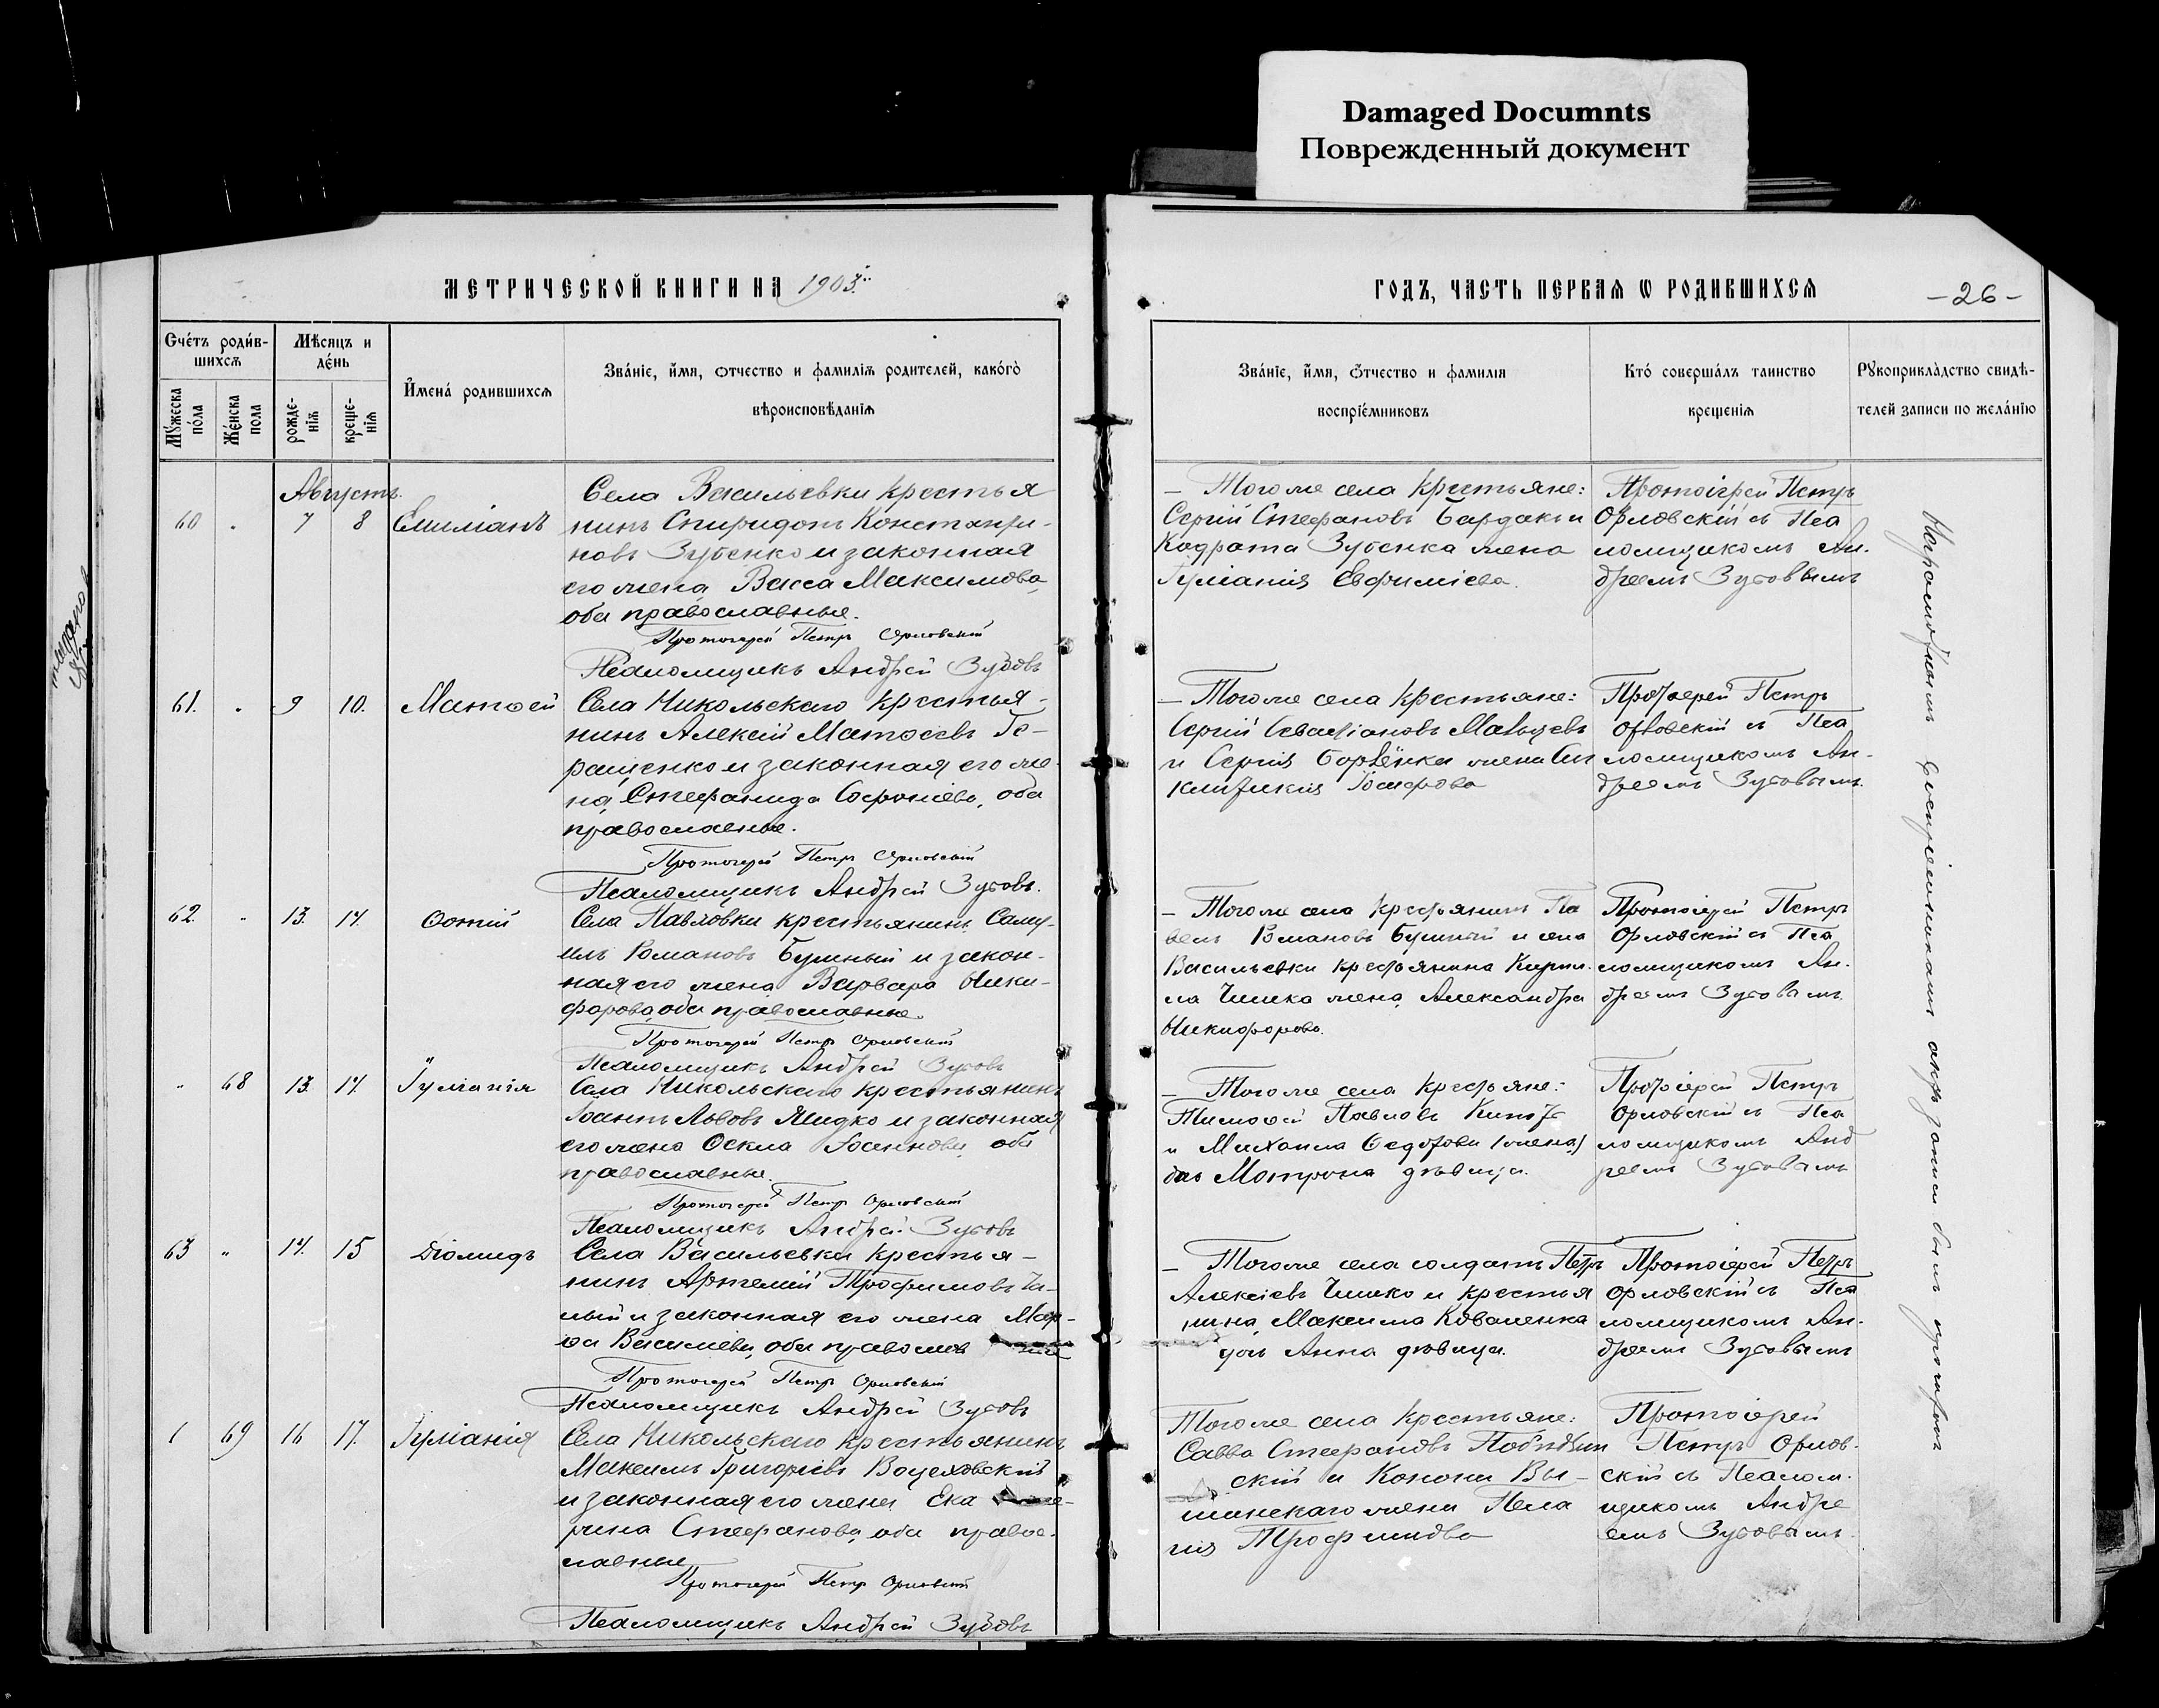 Damaged Documnts
Поврежденный документ
МЕТРИЧЕСКОЙ КНИГИ НА 1903
ГОДЪ, ЧАСТЬ ПЕРВАЯ Ѡ РОДИВШИХСѦ
-26-
Счетъ родив-
шихсѧ
Мѣсяцъ и
день
Мужеска
пола
Женска
пола
рожде-
нїѧ
креще-
нїѧ
Имена родившихсѧ
Званїе, имя, ѿтчество и фамилїѧ родителей, какого
вѣроисповѣданїѧ
Званїе, имя, ѿтчество и фамилїя
воспрїемниковъ
Кто совершалъ таинство
крещенїѧ
Рꙋкоприкладство свидѣ-
телей записи по желанїю
Августъ
60 " 7 8 Емиліанъ
Села Васильевки крестья
нинъ Спиридонъ Константи-
новъ Зубенко и законная
его жена Васса Максимова,
оба православные.
Протоіерей Петръ Орловскій
Псаломщикъ Андрей Зубовъ
— Того же села крестьяне:
Сергій Стефановъ Бардакъ и
Кодрата Зубенка жена
Іуліанія Евфиміева.
Протоіерей Петръ
Орловскій съ Пса
ломщикомъ Ан-
дреемъ Зубовымъ
61. " 9 10. Матѳей
Села Никольскаго крестья-
нинъ Алексій Матѳеевъ Ге-
ращенко и законная его же
на Стефанида Софоніева, оба
православные.
Протоіерей Петръ Орловскій
Псаломщикъ Андрей Зубовъ.
— Того же села крестьяне:
Сергій Севастіановъ
и Сергія жена Син
клитикія
Протоіерей Петръ
Орловскій съ Пса
ломщикомъ Ан-
дреемъ Зубовымъ.
62. " 13. 14. Фотій
Села Павловки крестьянинъ Саму-
илъ Романовъ Бушный и закон-
ная его жена Варвара Ники-
форова, оба православные.
Протоіерей Петръ Орловскій
Псаломщикъ Андрей Зубовъ
— Того же села крестьянинъ Па
велъ Романовъ Бушный и села
Васильевки крестьянина Кирил-
ла Чишка жена Александра
Никифорова.
Протоіерей Петръ
Орловскій съ Пса
ломщикомъ Ан-
дреемъ Зубовымъ.
" 68 13. 14. Іуліанія
Села Никольскаго крестьянинъ
Іоаннъ Львовъ и законная
его жена Іоаннова, оба
православные.
Протоіерей Петръ Орловскій
Псаломщикъ Андрей Зубовъ
— Того же села крестьяне:
Тимоѳей Павловъ
и Михаила
Матрона дѣвица.
Протоіерей Петръ
Орловскій съ Пса
ломщикомъ Анд
реемъ Зубовымъ
63 " 14. 15 Діомидъ
Села Васильевки крестья-
нинъ Артемій Трофимовъ
и законная его жена Мар-
Василіева, оба православ
Протоіерей Петръ Орловскій
Псаломщикъ Андрей Зубовъ
— Того же села солдатъ Петръ
Алексіевъ Чишко и крестья
нина Максима Коваленка
дочь Анна дѣвица.
Протоіерей Петръ
Орловскій съ Пса
ломщикомъ Ан-
дреемъ Зубовымъ
69 16 17. Іуліанія
Села Никольскаго крестьянинъ
Максимъ Григоріевъ Воцеховскій
и законная его жена Ека
рина Стефанова, оба право-
славные
Протоіерей Петръ Орловскій
Псаломщикъ Андрей Зубовъ
Того же села крестьяне:
Савва Стефановъ
скій и Конона Вы-
шинскаго жена Пела
гія Трофимова
Протоіерей
Петръ Орлов-
скій съ Псалом-
щикомъ Андре
емъ Зубовымъ.
воспріемникамъ актъ записи былъ прочитанъ